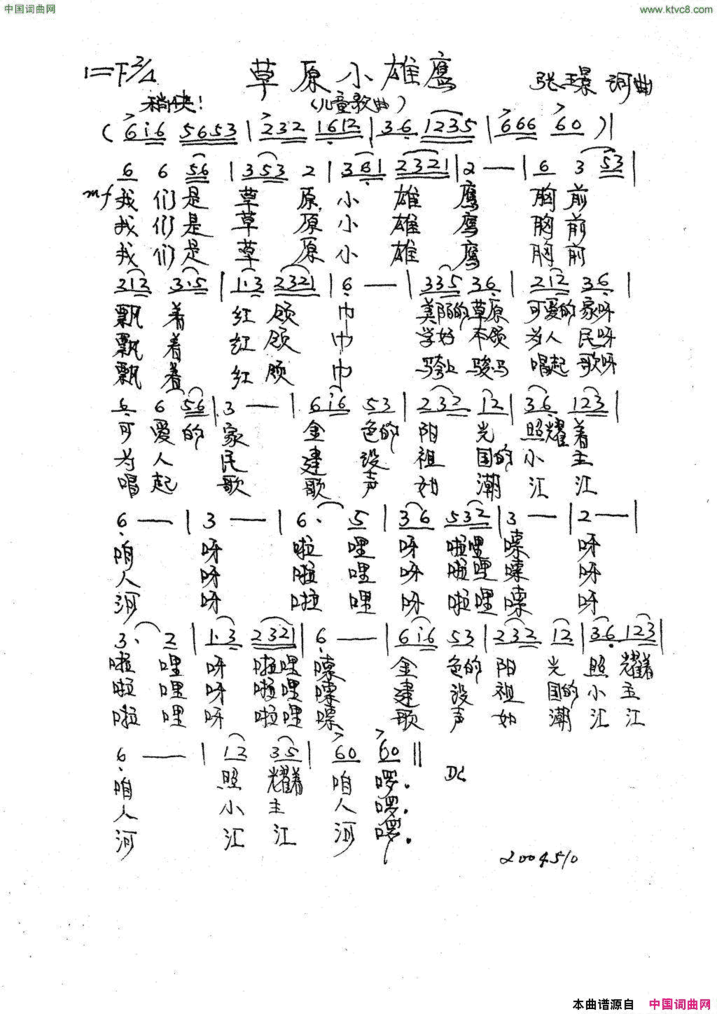 中国词曲网
www.ktvc8.com
1=F 2/4 草原小雄鹰 张璟 词曲
稍快! (儿童歌曲)
(6i6 5653 | 232 1612 | 36 1235 | 666 60 ) |
6 6 56 | 353 2 | 361 2321 | 2 — | 6 3 53 |
mf 我们是草原小雄鹰 胸前
我们是草原小雄鹰 胸前
我们是草原小雄鹰 胸前
212 3·5 | 1·3 2321 | 6 — | 335 36 | 212 36 |
飘着红领巾 美丽的草原 可爱的家呀
飘着红领巾 学好本领 为人民呀
飘着红领巾 骑上骏马 唱起歌呀
6 6 56 | 3 — | 6i6 53 | 232 12 | 36 123 |
可爱的家 金色的阳光照耀着
为人民 建设祖国的小主
唱起歌 歌声如潮汇江
6 — | 3 — | 6· 5 | 36 532 | 3 — | 2 — |
咱呀 啦哩呀啦哩嗦呀
人呀 啦哩呀啦哩嗦呀
河呀 啦哩呀啦哩嗦呀
3· 2 | 1·3 2321 | 6 — | 6i6 53 | 232 12 | 36 123 |
啦哩呀啦哩嗦 金色的阳光照耀着
啦哩呀啦哩嗦 建设祖国的小主
啦哩呀啦哩嗦 歌声如潮汇江
6 — | 12 35 | 60 60 || DC
咱 照耀着咱啰.
人 小主人啰.
河 汇江河啰.
2004.5/0
本曲谱源自 中国词曲网